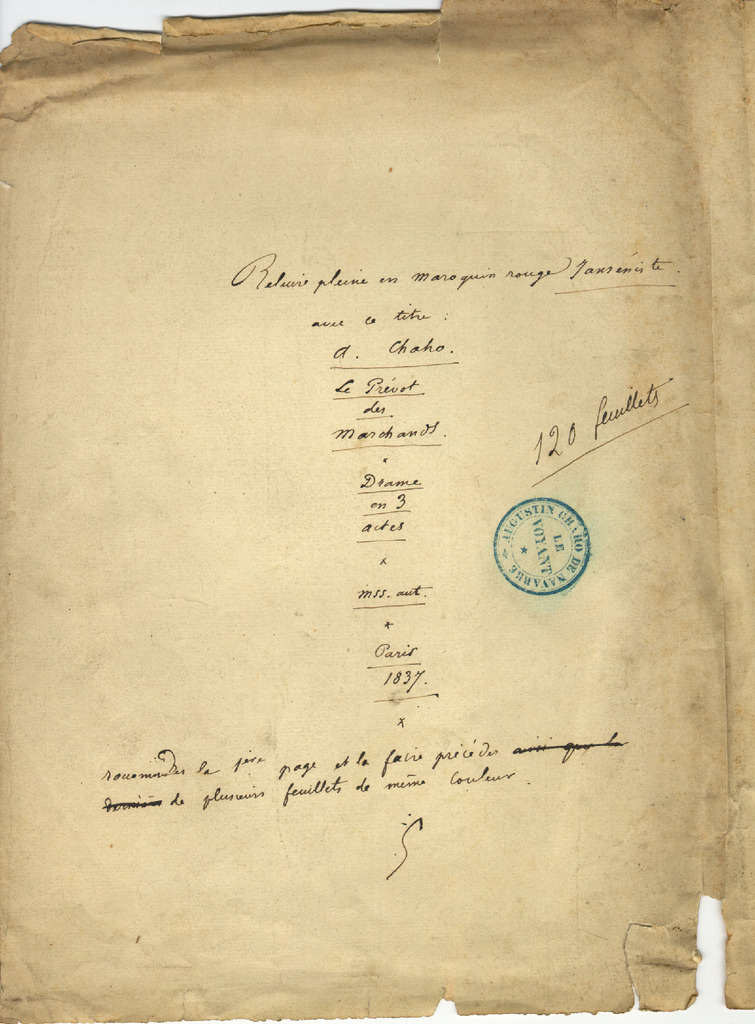 Relire pleine en maroquin rouge Janséniste.
avec ce titre :
A. Chaho.
Le Prévot
des
Marchands.
Drame
en 3
actes
x
mss. aut.
x
Paris
1837.
x
120 feuillets
AUGUSTIN CHAHO DE NAVARRE
LE
VOYANT
la 1ère page et la faire précéder ainsi que la
dernière de plusieurs feuillets de même couleur.